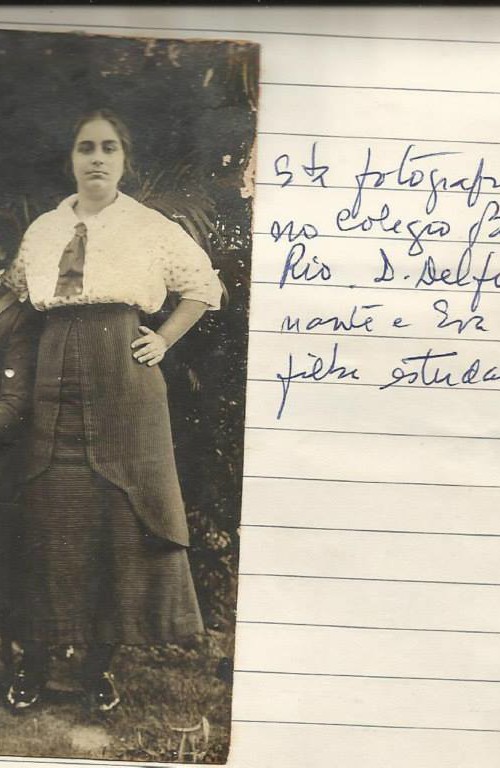 sta fotograf
no Colegio B
Rio. D. Delf
nante e Eva
filha estuda